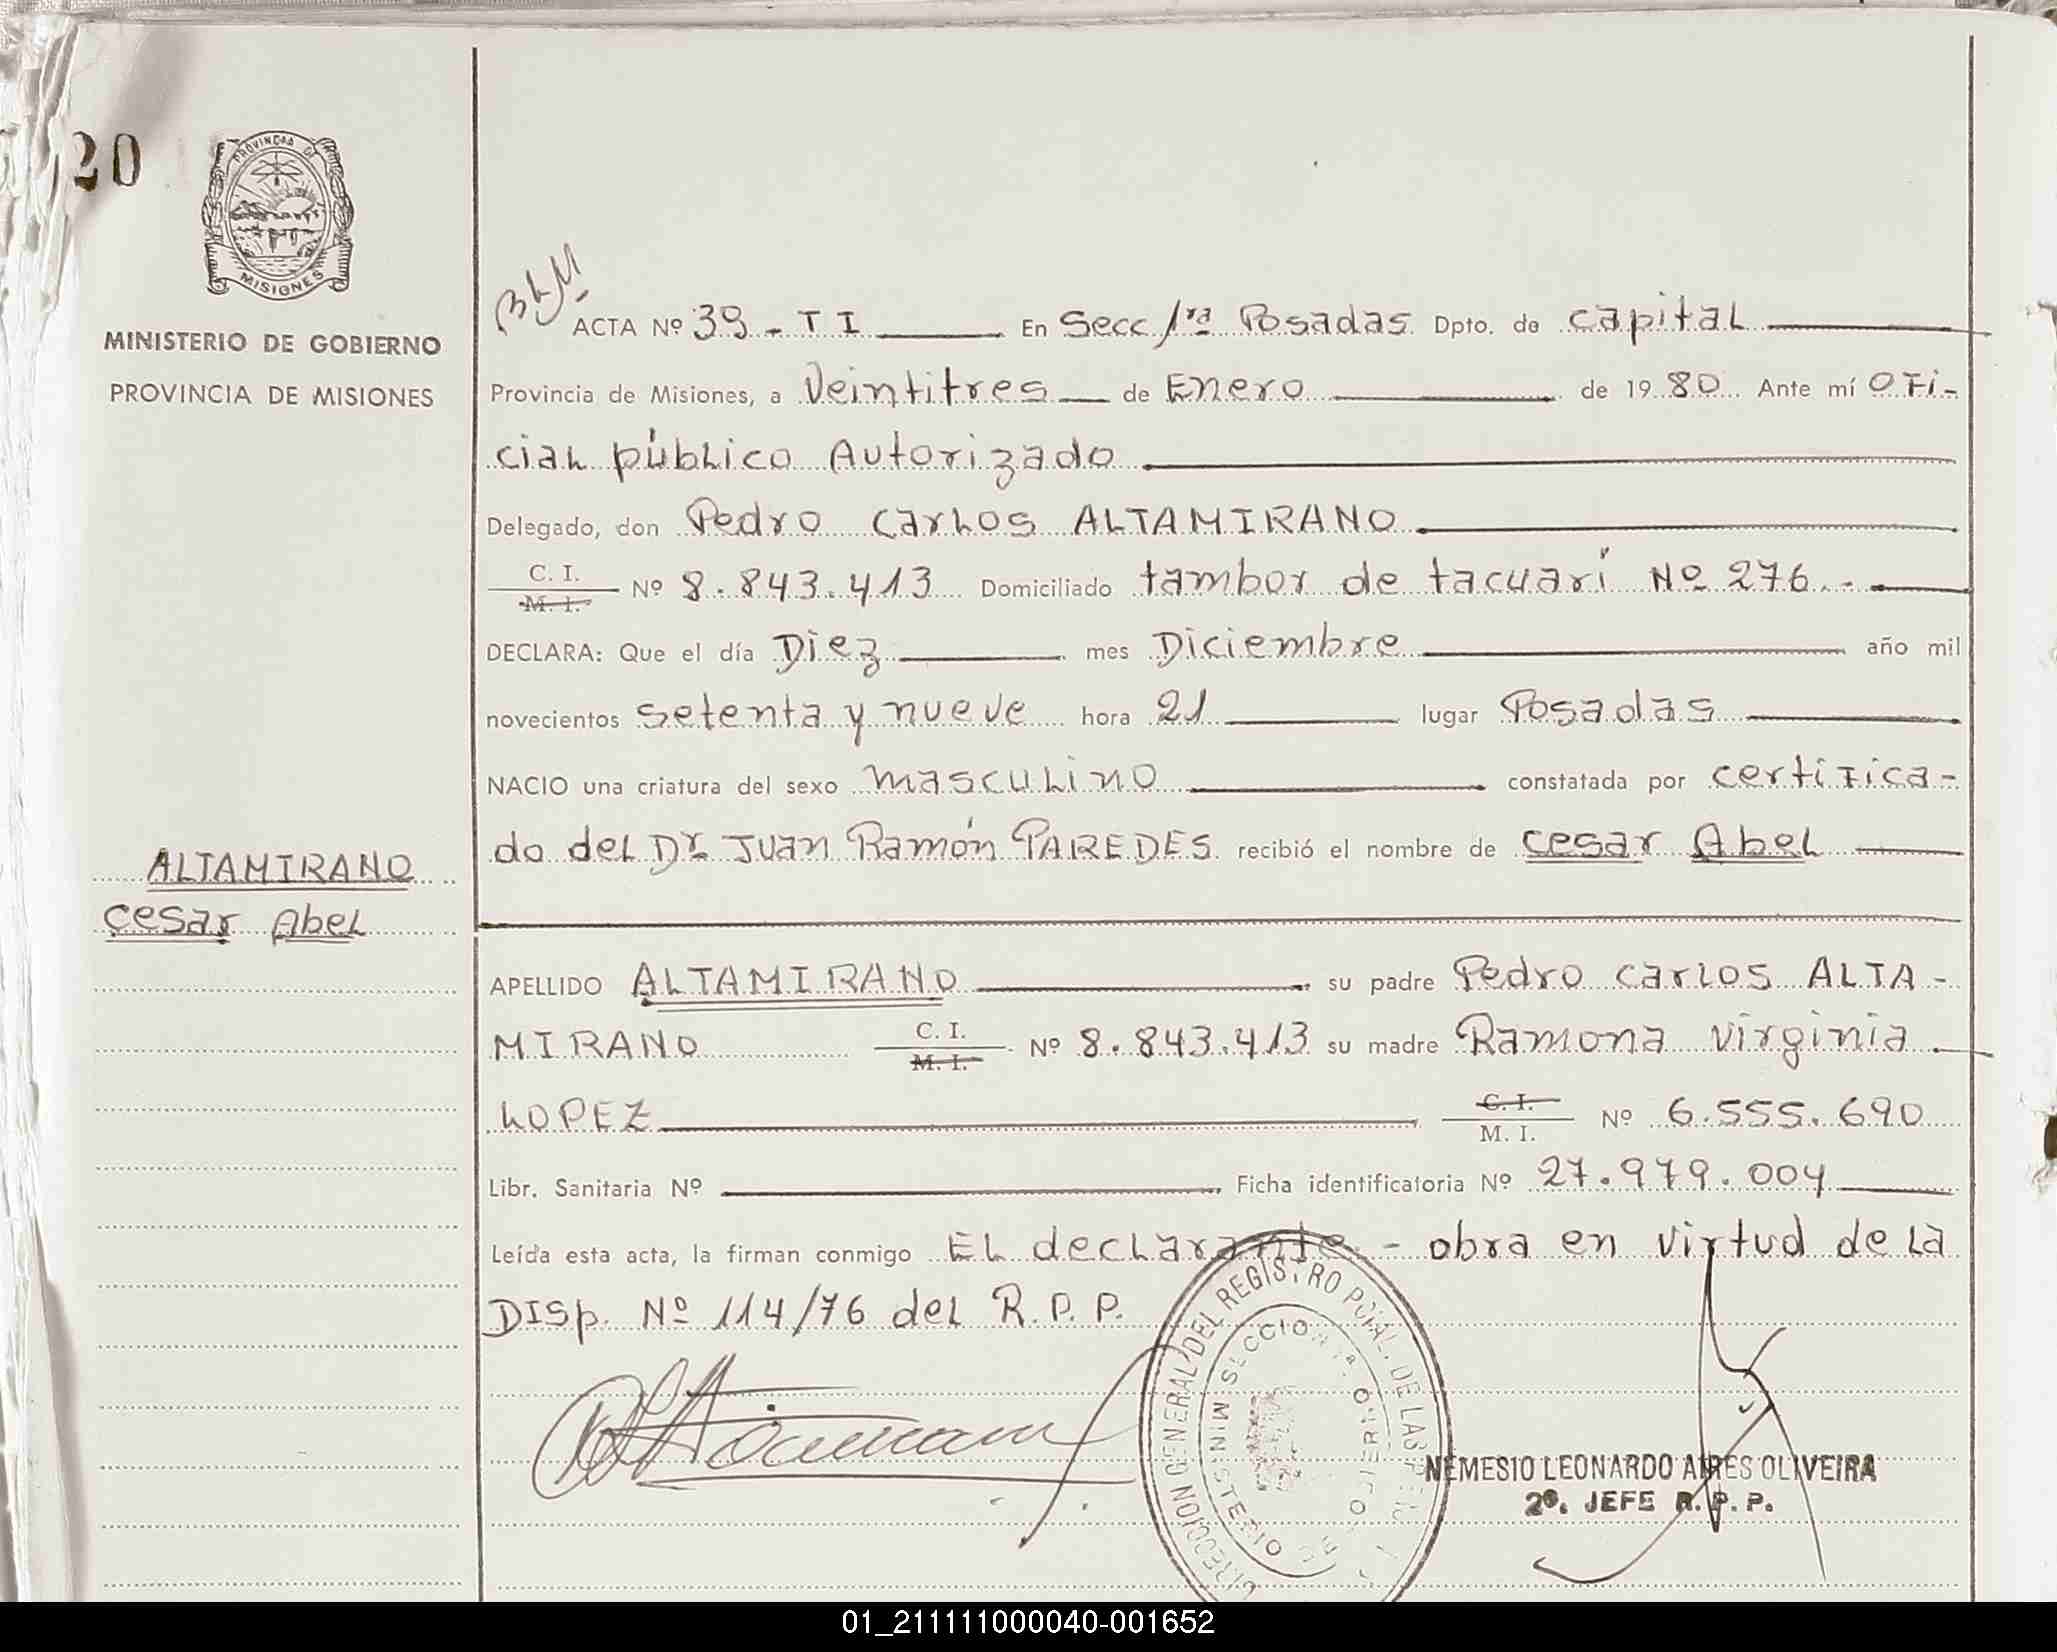 20
PROVINCIA DE
MISIONES
MINISTERIO DE GOBIERNO
PROVINCIA DE MISIONES
ALTAMIRANO
Cesar Abel
ACTA Nº 39 - T I En Secc 1ra Posadas Dpto. de Capital
Provincia de Misiones, a Veintitres de Enero de 1980 Ante mí Ofi-
cial público Autorizado
Delegado, don Pedro Carlos ALTAMIRANO
C. I.
M. I. Nº 8.843.413 Domiciliado tambor de tacuarí Nº 276.-
DECLARA: Que el día Diez mes Diciembre año mil
novecientos setenta y nueve hora 21 lugar Posadas
NACIO una criatura del sexo masculino constatada por certifica-
do del Dr. Juan Ramón PAREDES recibió el nombre de Cesar Abel
APELLIDO ALTAMIRANO su padre Pedro Carlos ALTA-
MIRANO C. I.
M. I. Nº 8.843.413 su madre Ramona Virginia
LOPEZ C. I.
M. I. Nº 6.555.690
Libr. Sanitaria Nº Ficha identificatoria Nº 27.979.004
Leída esta acta, la firman conmigo El declarante - obra en virtud de la
DISp. Nº 114/76 del R.P.P.
DIRECCION GENERAL DEL REGISTRO PCIAL. DE LAS PER
MINISTERIO DE GOBIERNO
SECCION 1ª
NEMESIO LEONARDO AIRES OLIVEIRA
2º. JEFE R.P.P.
01_211111000040-001652